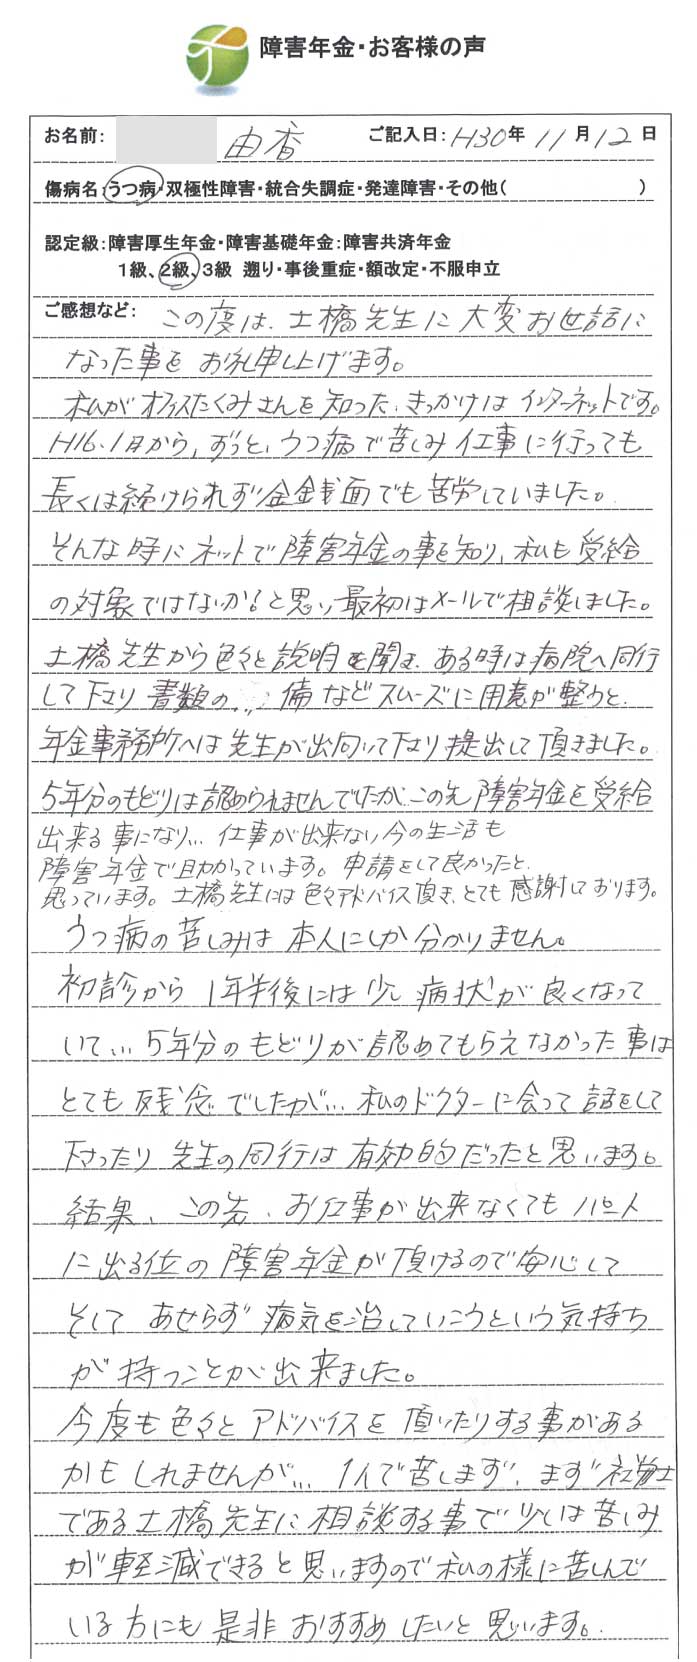 障害年金・お客様の声
お名前: 由香 ご記入日: H30年 11月12日
傷病名:うつ病・双極性障害・統合失調症・発達障害・その他( )
認定級:障害厚生年金・障害基礎年金:障害共済年金
1級、2級、3級 遡り・事後重症・額改定・不服申立
ご感想など: この度は、土橋先生に大変お世話に
なった事をお礼申し上げます。
私がオフィスたくみさんを知った、きっかけはインターネットです。
H16.1月から、ずっと、うつ病で苦しみ仕事に行っても
長くは続けられず金銭面でも苦労していました。
そんな時にネットで障害年金の事を知り、私も受給
の対象ではないか?と思い最初はメールで相談しました。
土橋先生から色々と説明を聞き、ある時は病院へ同行
して下さり書類の…備などスムーズに用意が整うと、
年金事務所へは先生が出向いて下さり提出して頂きました。
5年分のもどりは認められませんでしたが、この先障害年金を受給
出来る事になり… 仕事が出来ない今の生活も
障害年金で助かっています。申請をして良かったと、
思っています。土橋先生には色々アドバイス頂き、とても感謝しております。
うつ病の苦しみは本人にしか分かりません。
初診から1年半後には少し病状が良くなって
いて… 5年分のもどりが認めてもらえなかった事は
とても残念でしたが… 私のドクターに会って話をして
下さったり先生の同行は有効的だったと思います。
結果、この先、お仕事が出来なくてもパート
に出る位の障害年金が頂けるので安心して
そして あせらず病気を治していこうという気持ち
が持つことが出来ました。
今度も色々とアドバイスを頂いたりする事がある
かもしれませんが… 1人で苦しまず、まず社労士
である土橋先生に相談する事で少しは苦しみ
が軽減できると思いますので私の様に苦しんで
いる方にも是非おすすめしたいと思います。